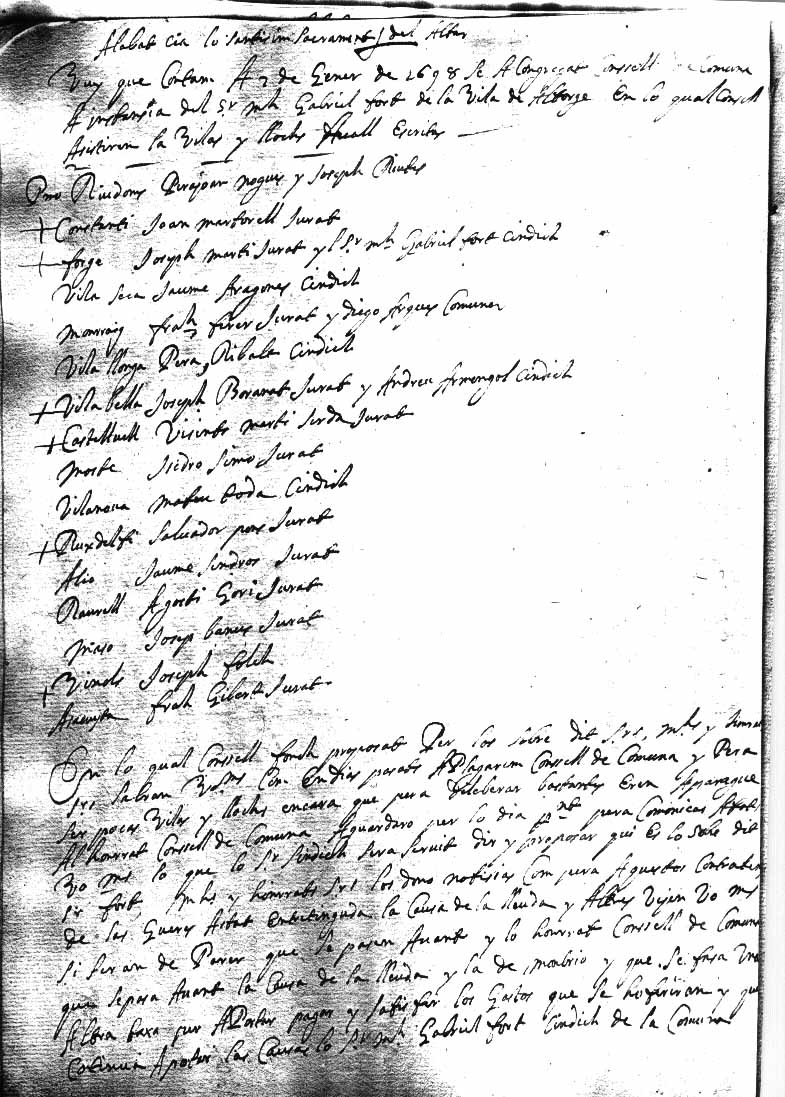 Alabat sia lo santisim Sacrament del Altar
Vuy que Contam A 7 de Gener de 1698 Se A Congregat Consell de Comuna
A instansia del Sr mh Gabriel fort de la Vila de Alforge En lo qual Consell
Asistiren la Vilas y llochs Escrits
Pmo Riudoms nogues y Joseph
+ Constanti Joan martorell Jurat
+ forge Joseph marti Jurat y l Sr mh Gabriel fort Cindich
Vila Seca Jaume Aragones Cindich
Monrroig frah firer Jurat y diego Argues Comuner
Vila llonga Pera Ribalt Cindich
+ Vila bella Joseph Boranat Jurat y Andreu Armengol Cindich
+ Castelluell Visents marti Serda Jurat
Morbe Isidro Simo Jurat
Vilanova mateu boda Cindich
+ Salvador pons Jurat
Alio Jaume Jurat
Raurell Agosti Gori Jurat
Maso Josep banus Jurat
+ Vinols Joseph folch
frah Gibert Jurat
En lo qual Consell fonch proposat Per los sobre dit Srs, mhs y
Srs Sabran Vo ms Com En dias pasats A Plagarem Consell de Comuna y Pera
Ser pocas Vilas y llochs encara que pera deliberar bastants Eren
Al honrrat Consell de Comuna Aguardaro per lo dia pnt pera
Vo ms lo que lo Sr Sindich Sera Servit dir y proposar qui Es lo Sobe dit
Sr fort mhs y honrrats Srs los dono notisias Com pera
de las Gueres Estat Entretinguda la Causa de la lleuda y Altres Vejen Vo ms
Si Seran de Parer que Se pasen Avant y lo honrrat Consell de Comuna
que Sepasa Avant la Causa de la lleuda y la de monbrio y que Se fasa Una
Altra taxa per A Portar pagar y satisfer los Gastos que Se y que
Continua Aportar las Causas lo Sr mh Gabriel fort Cindich de la Comuna